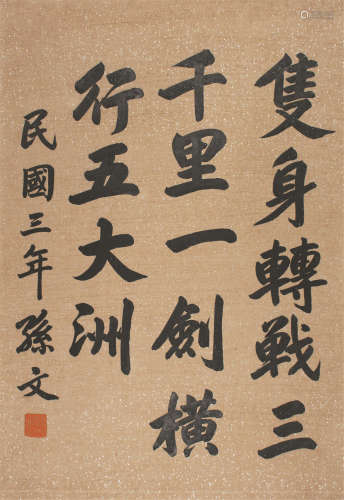 隻身轉戰三
千里一劍橫
行五大洲
民國三年孫文